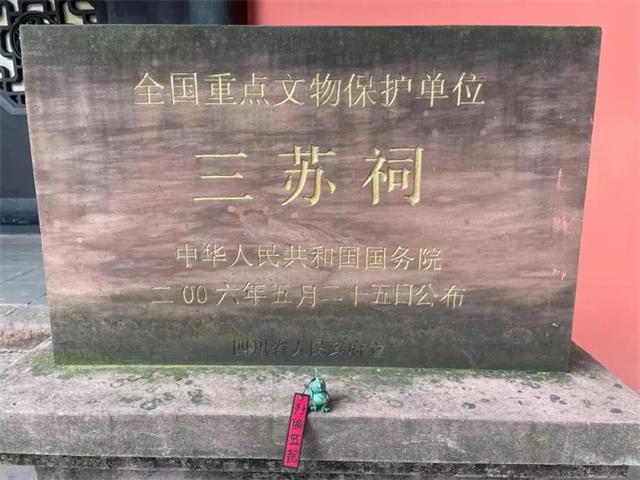 全国重点文物保护单位
三苏祠
中华人民共和国国务院
二00六年五月二十五日公布
四川省人民政府立